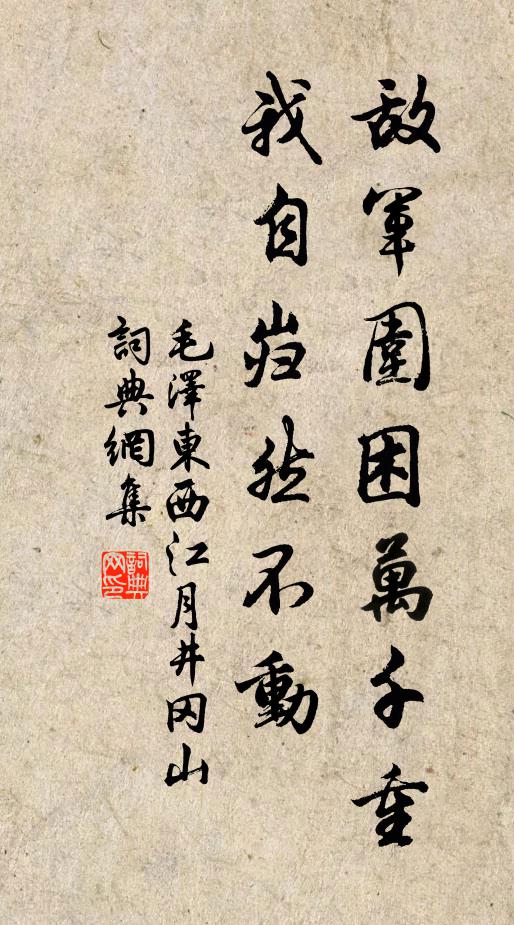 敌軍圍困萬千重
我自岿然不動
毛澤東西江月井冈山
詞典網集
詞典网印